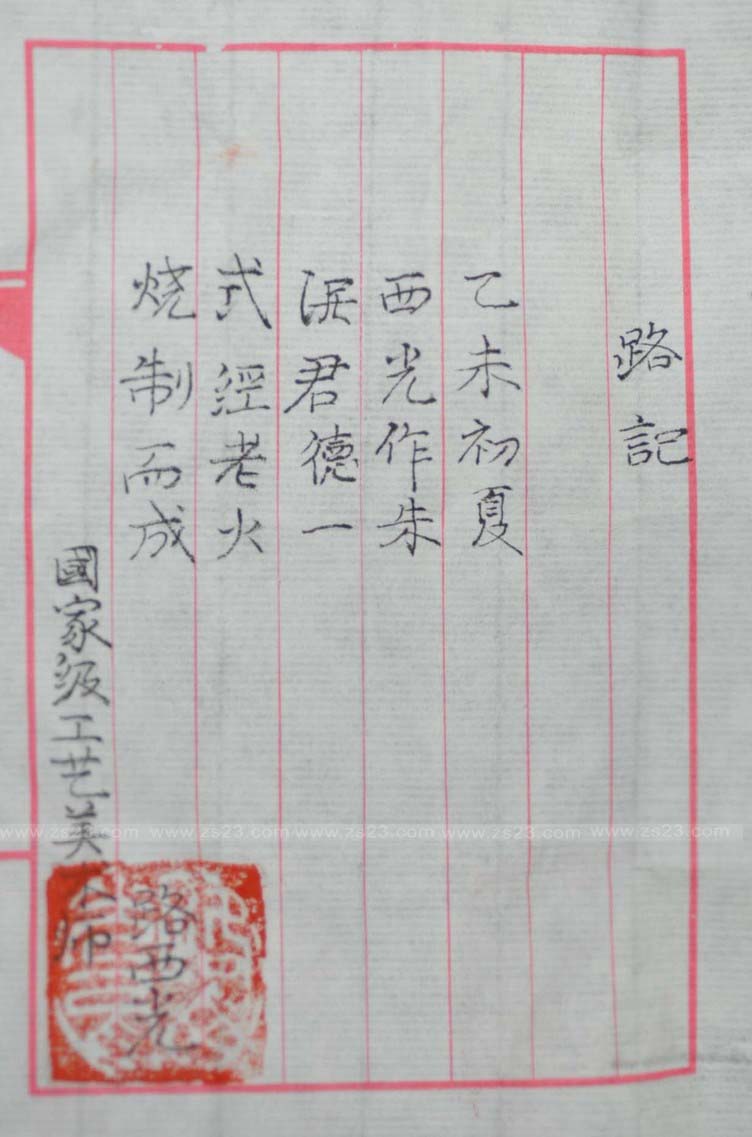 路記
乙未初夏
西光作朱
泥君德一
式經老火
烧制而成
國家级工艺美术师
路西光
www.zs23.com www.zs23.com www.zs23.com www.zs23.com www.zs23.com